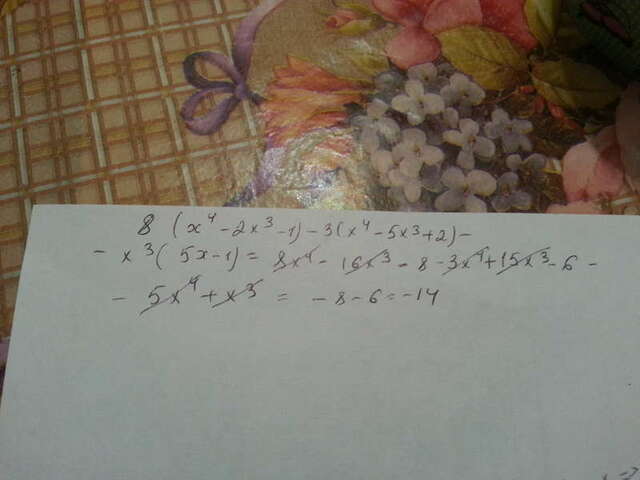 8 (x⁴ - 2x³ - 1) - 3(x⁴ - 5x³ + 2) -
- x³( 5x - 1) = 8x⁴ - 16x³ - 8 - 3x⁴ + 15x³ - 6 -
- 5x⁴ + x³ = - 8 - 6 = -14